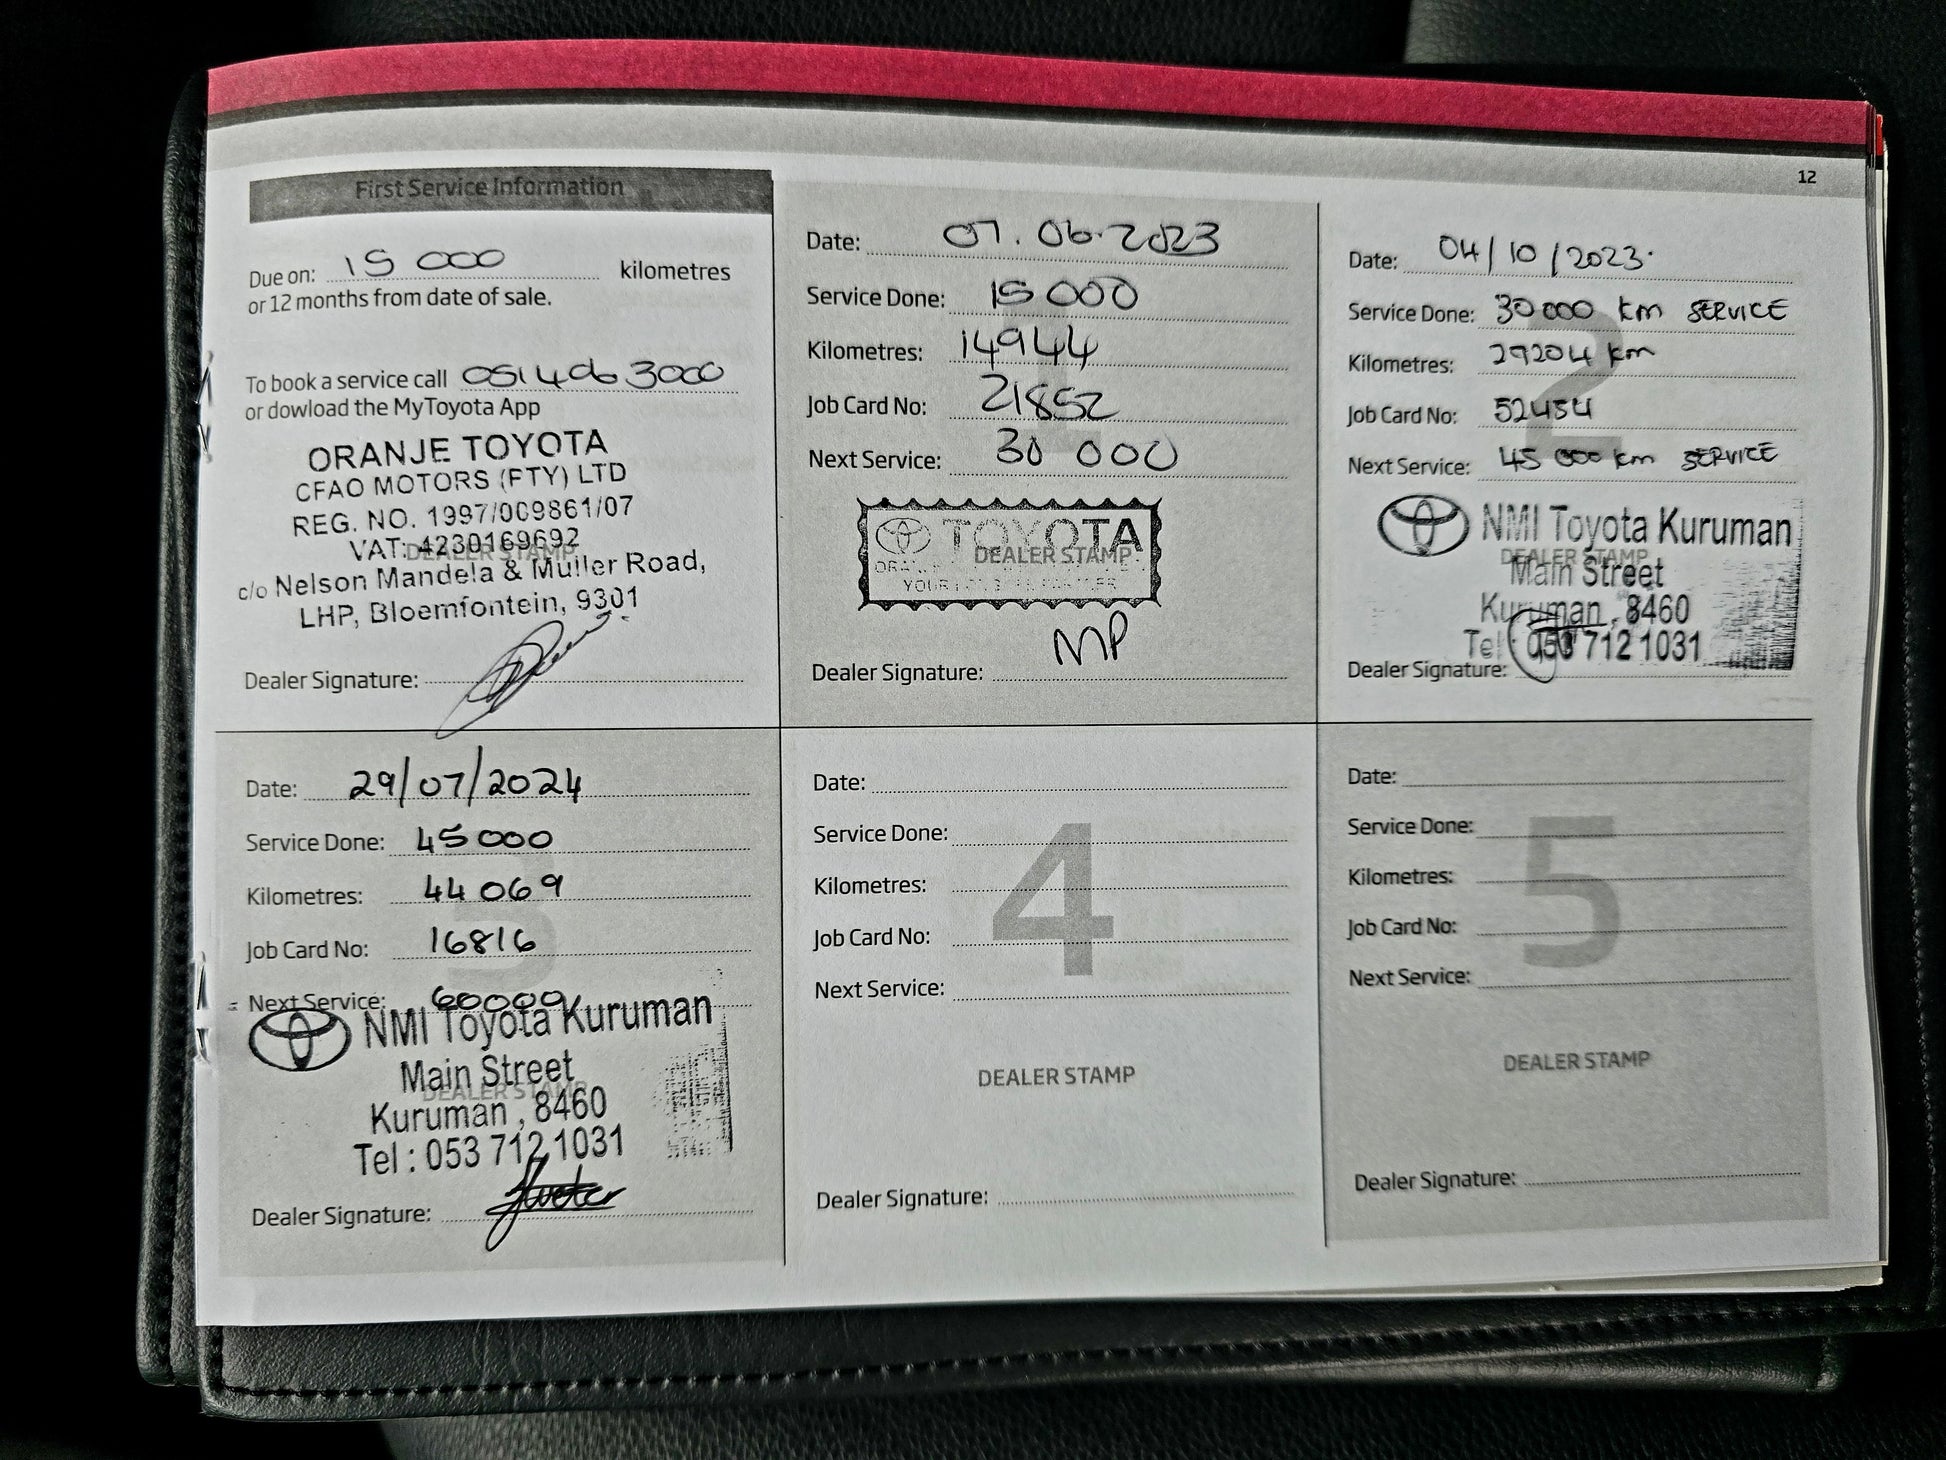 12
First Service Information
Due on: 15 000 kilometres
or 12 months from date of sale.
To book a service call 051 406 3000
or dowload the MyToyota App
ORANJE TOYOTA
CFAO MOTORS (PTY) LTD
REG. NO. 1997/009861/07
VAT: 4230169692
DEALER STAMP
c/o Nelson Mandela & Muller Road,
LHP, Bloemfontein, 9301
Dealer Signature:
Date: 07.06.2023
Service Done: 15 000
Kilometres: 14944
Job Card No: 21852
Next Service: 30 000
TOYOTA
DEALER STAMP
Dealer Signature: MP
Date: 04/10/2023.
Service Done: 30 000 km SERVICE
Kilometres: 29204 km
2
Job Card No: 52454
Next Service: 45 000 km SERVICE
NMI Toyota Kuruman
DEALER STAMP
Main Street
Kuruman , 8460
Tel : 053 712 1031
Dealer Signature:
Date: 29/07/2024
Service Done: 45 000
Kilometres: 44 069
3
Job Card No: 16816
Next Service: 60000
NMI Toyota Kuruman
Main Street
DEALER STAMP
Kuruman , 8460
Tel : 053 712 1031
Dealer Signature:
Date:
Service Done:
4
Kilometres:
Job Card No:
Next Service:
DEALER STAMP
Dealer Signature:
Date:
Service Done:
5
Kilometres:
Job Card No:
Next Service:
DEALER STAMP
Dealer Signature: